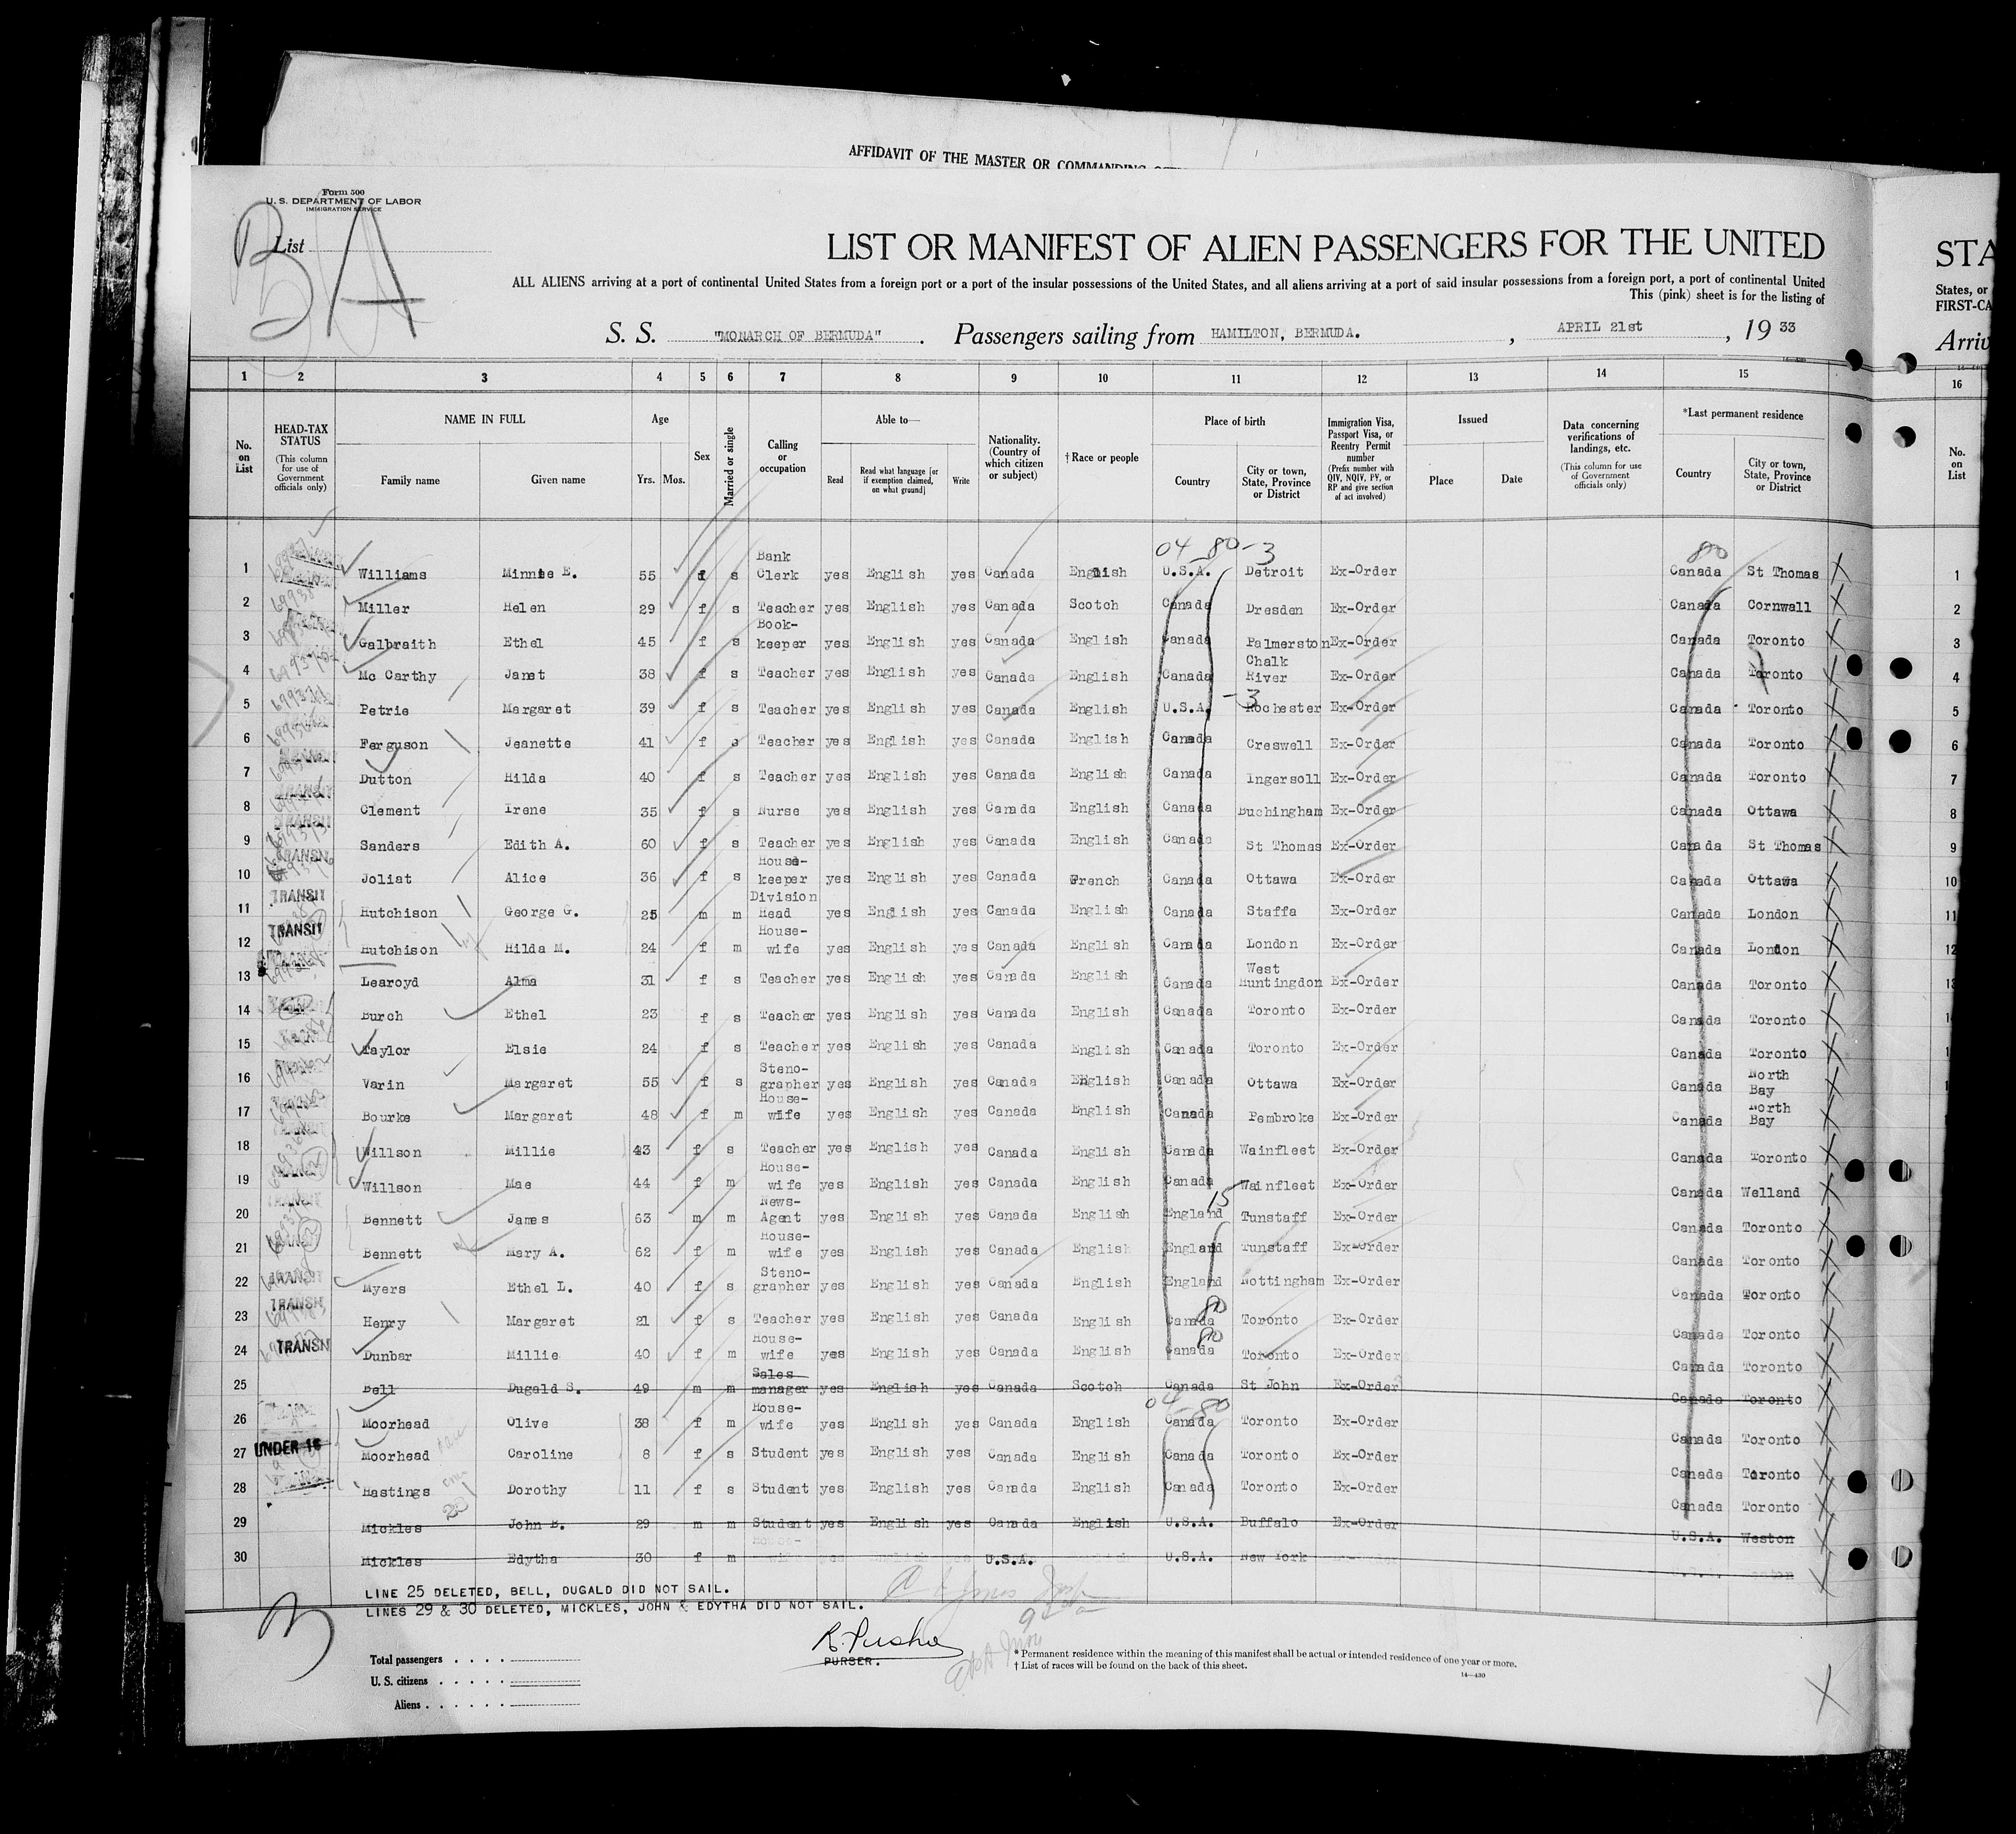 AFFIDAVIT OF THE MASTER OR COMMANDING
Form 500
U. S. DEPARTMENT OF LABOR
IMMIGRATION SERVICE
List
B A
LIST OR MANIFEST OF ALIEN PASSENGERS FOR THE UNITED
STA
ALL ALIENS arriving at a port of continental United States from a foreign port or a port of the insular possessions of the United States, and all aliens arriving at a port of said insular possessions from a foreign port, a port of continental United
States, or
This (pink) sheet is for the listing of
FIRST-CA
S. S. "MONARCH OF BERMUDA". Passengers sailing from HAMILTON, BERMUDA. , APRIL 21st , 19 33
Arriv
1 2 3 4 5 6 7 8 9 10 11 12 13 14 15 16
No. on List
HEAD-TAX STATUS (This column for use of Government officials only)
NAME IN FULL
Family name Given name
Age
Yrs. Mos.
Sex
Married or single
Calling or occupation
Able to—
Read
Read what language [or if exemption claimed, on what ground]
Write
Nationality. (Country of which citizen or subject)
† Race or people
Place of birth
Country
City or town, State, Province or District
Immigration Visa, Passport Visa, or Reentry Permit number (Prefix number with QIV, NQIV, PV, or RP and give section of act involved)
Issued
Place Date
Data concerning verifications of landings, etc. (This column for use of Government officials only)
*Last permanent residence
Country
City or town, State, Province or District
No. on List
04-80-3
80
1 Williams Minnie E. 55 f s Bank Clerk yes English yes Canada English U.S.A. Detroit Ex-Order Canada St Thomas 1
2 Miller Helen 29 f s Teacher yes English yes Canada Scotch Canada Dresden Ex-Order Canada Cornwall 2
3 Galbraith Ethel 45 f s Book-keeper yes English yes Canada English Canada Palmerston Ex-Order Canada Toronto 3
4 Mc Carthy Janet 38 f s Teacher yes English yes Canada English Canada Chalk River Ex-Order Canada Toronto 4
5 Petrie Margaret 39 f s Teacher yes English yes Canada English U.S.A. -3 Rochester Ex-Order Canada Toronto 5
6 Ferguson Jeanette 41 f s Teacher yes English yes Canada English Canada Creswell Ex-Order Canada Toronto 6
7 Dutton Hilda 40 f s Teacher yes English yes Canada English Canada Ingersoll Ex-Order Canada Toronto 7
8 Clement Irene 35 f s Nurse yes English yes Canada English Canada Buchingham Ex-Order Canada Ottawa 8
9 Sanders Edith A. 60 f s Teacher yes English yes Canada English Canada St Thomas Ex-Order Canada St Thomas 9
10 Joliat Alice 36 f s House-keeper yes English yes Canada French Canada Ottawa Ex-Order Canada Ottawa 10
11 TRANSIT Hutchison George G. 25 m m Division Head yes English yes Canada English Canada Staffa Ex-Order Canada London 11
12 TRANSIT Hutchison Hilda M. 24 f m House-wife yes English yes Canada English Canada London Ex-Order Canada London 12
13 Learoyd Alma 31 f s Teacher yes English yes Canada English Canada West Huntingdon Ex-Order Canada Toronto
14 Burch Ethel 23 f s Teacher yes English yes Canada English Canada Toronto Ex-Order Canada Toronto
15 Taylor Elsie 24 f s Teacher yes English yes Canada English Canada Toronto Ex-Order Canada Toronto
16 Varin Margaret 55 f s Steno-grapher yes English yes Canada English Canada Ottawa Ex-Order Canada North Bay
17 Bourke Margaret 48 f m House-wife yes English yes Canada English Canada Pembroke Ex-Order Canada North Bay
18 Willson Millie 43 f s Teacher yes English yes Canada English Canada Wainfleet Ex-Order Canada Toronto
19 Willson Mae 44 f m House-wife yes English yes Canada English Canada Wainfleet Ex-Order Canada Welland
20 Bennett James 63 m m News-Agent yes English yes Canada English England 15 Tunstaff Ex-Order Canada Toronto
21 Bennett Mary A. 62 f m House-wife yes English yes Canada English England Tunstaff Ex-Order Canada Toronto
22 TRANSIT Myers Ethel L. 40 f s Steno-grapher yes English yes Canada English England Nottingham Ex-Order Canada Toronto
23 TRANSIT Henry Margaret 21 f s Teacher yes English yes Canada English Canada 80 Toronto Ex-Order Canada Toronto
24 TRANSIT Dunbar Millie 40 f m House-wife yes English yes Canada English Canada 80 Toronto Ex-Order Canada Toronto
25 Bell Dugald S. 49 m m Sales manager yes English yes Canada Scotch Canada St John Ex-Order Canada Toronto
04-80
26 Moorhead Olive 38 f m House-wife yes English yes Canada English Canada Toronto Ex-Order Canada Toronto
27 UNDER 16 Moorhead Caroline 8 f s Student yes English yes Canada English Canada Toronto Ex-Order Canada Toronto
28 Hastings Dorothy 11 f s Student yes English yes Canada English Canada Toronto Ex-Order Canada Toronto
29 Mickles John B. 29 m m Student yes English yes Canada English U.S.A. Buffalo Ex-Order U.S.A. Weston
30 Mickles Edytha 30 f m U.S.A. U.S.A. New York
LINE 25 DELETED, BELL, DUGALD DID NOT SAIL.
LINES 29 & 30 DELETED, MICKLES, JOHN & EDYTHA DID NOT SAIL.
PURSER.
Total passengers
U. S. citizens
Aliens
* Permanent residence within the meaning of this manifest shall be actual or intended residence of one year or more.
† List of races will be found on the back of this sheet.
14—430